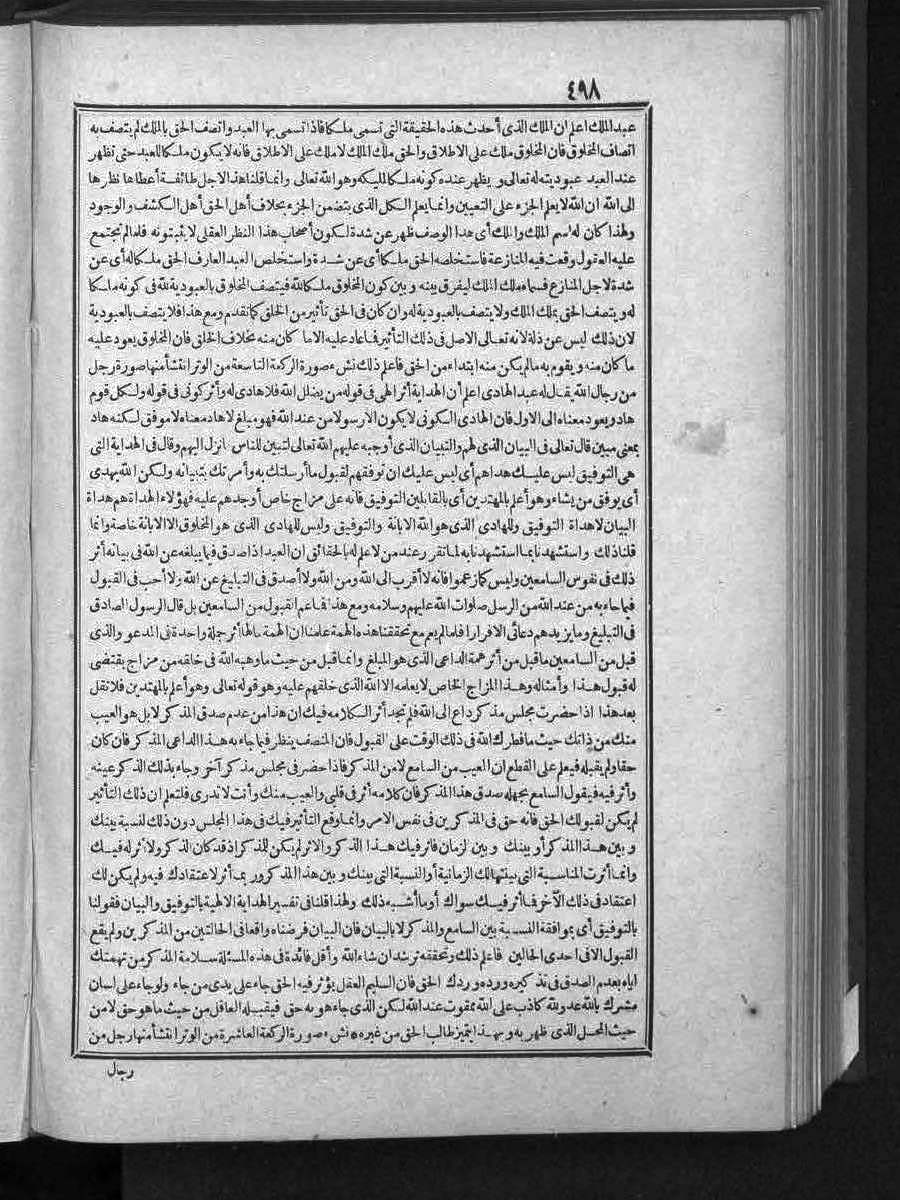 ٤٩٨
عبد الملك اعلم ان الملك الذى أحدث هذه الحقيقة التى تسمى ملكا فاذا تسمى بها العبد واتصف الحق بالملك لم يتصف به
اتصاف المخلوق فان المخلوق ملك على الاطلاق والحق ملك الملك لاملك على الاطلاق فانه لا يكون ملكا للعبد حتى تظهر
عند العبد عبوديته له تعالى و يظهر عنده كونه ملكا لمليكه وهو الله تعالى وانما قلنا هذا لاجل طائفة أعطاها نظرها
الى الله ان الله لا يعلم الجزء على التعيين وانما يعلم الكل الذى يتضمن الجزء بخلاف أهل الحق أهل الكشف والوجود
ولهذا كان له اسم الملك والملك أى هذا الوصف ظهر عن شدة لكون أصحاب هذا النظر العقلى لا يثبتونه فلما لم تجتمع
عليه العقول وقعت فيه المنازعة فاستخلصه الحق ملكا أى عن شدة واستخلص العبد العارف الحق ملكا له أى عن
شدة لاجل المنازع فسماه ملك الملك ليفرق بينه و بين كون المخلوق ملكا لله فيتصف المخلوق بالعبودية لله فى كونه ملكا
له و يتصف الحق بملك الملك ولا يتصف بالعبودية له وان كان فى الحق تأثير من الخلق كما تقدم ومع هذا فلا يتصف بالعبودية
لان ذلك ليس عن ذلة لانه تعالى الاصل فى ذلك التأثير فما عاد عليه الاما كان منه بخلاف الخلق فان المخلوق يعود عليه
ما كان منه و يقوم به ما لم يكن منه ابتداء من الحق فاعلم ذلك نشء صورة الركعة التاسعة من الوتر انتشأ منها صورة رجل
من رجال الله يقال له عبد الهادى اعلم أن الهداية أثر الهى فى قوله من يضلل الله فلا هادى له وأثر كونى فى قوله ولكل قوم
هاد و يعود معناه الى الاول فان الهادى الكونى لا يكون الا رسولا من عند الله فهو مبلغ لا هاد معناه لا موفق لكنه هاد
بمعنى مبين قال تعالى فى البيان الذى لهم والتبيان الذى أوجبه عليهم الله تعالى لتبين للناس انزل اليهم وقال فى الهداية التى
هى التوفيق ليس عليك هداهم أى ليس عليك ان توفقهم لقبول ما أرسلتك به وأمرتك بتبيانه ولكن الله يهدى
أى يوفق من يشاء وهو أعلم بالمهتدين أى بالقابلين التوفيق فانه على مزاج خاص أوجدهم عليه فهؤلاء الهداة هم هداة
البيان لا هداة التوفيق وللهادى الذى هو الله الابانة والتوفيق وليس للهادى الذى هو المخلوق الا الابانة خاصة وانما
قلنا ذلك واستشهدنا بما استشهدنا به لما تقرر عند من لا علم له بالحقائق ان العبد اذا صدق فيما يبلغه عن الله فى بيانه أثر
ذلك فى نفوس السامعين وليس كما زعموا فانه لا أقرب الى الله ومن الله ولا أصدق فى التبليغ عن الله ولا أحب فى القبول
فيما جاء به من عند الله من الرسل صلوات الله عليهم وسلامه ومع هذا فما عم القبول من السامعين بل قال الرسول الصادق
فى التبليغ وما يزيدهم دعائى الا فرارا فلما لم يعم مع تحققنا هذه الهمة علمنا ان الهمة مالها أثر جملة واحدة فى المدعو والذى
قبل من السامعين ما قبل من أثر همة الداعى الذى هو المبلغ وانما قبل من حيث ما وهبه الله فى خلقه من مزاج يقتضى
له قبول هذا وأمثاله وهذا المزاج الخاص لا يعلمه الا الله الذى خلقهم عليه وهو قوله تعالى وهو أعلم بالمهتدين فلا تقل
بعد هذا اذا حضرت مجلس مذكر داع الى الله فلم تجد أثر الكلامه فيك ان هذا من عدم صدق المذكر لا بل هو العيب
منك من ذاتك حيث ما فطرك الله فى ذلك الوقت على القبول فان المنصف ينظر فيما جاء به هذا الداعى المذكر فان كان
حقا ولم يقبله فيعلم على القطع ان العيب من السامع لا من المذكر فاذا حضر فى مجلس مذكر آخر وجاء بذلك الذكر عينه
وأثر فيه فيقول السامع بجهله صدق هذا المذكر فان كلامه أثر فى قلبى والعيب منك وأنت لا تدرى فلتعلم ان ذلك التأثير
لم يكن لقبولك الحق فانه حق فى المذكرين فى نفس الامر وانما وقع التأثير فيك فى هذا المجلس دون ذلك لنسبة بينك
و بين هذا المذكر أو بينك و بين لزمان فاثر فيك هذا الذكر والاثر لم يكن للمذكر اذ قد كان الذكر ولا أثر له فيك
وانما أثرت المناسبة التى بينتها لك الزمانية أو النسبة التى بينك و بين هذا المذكر ور بما أثر لاعتقادك فيه ولم يكن لك
اعتقاد فى ذلك الآخر فما أثر فيك سواك أو ما أشبه ذلك ولهذا قلنا فى تفسير الهداية الالهية بالتوفيق والبيان فقولنا
بالتوفيق أى بموافقة النسبة بين السامع والمذكر لا بالبيان فان البيان فرضناه واقعا فى الحالتين من المذكرين ولم يقع
القبول الا فى احدى الحالين فاعلم ذلك وتحققه ترشد ان شاء الله وأقل فائدة فى هذه المسئلة سلامة المذكر من تهمتك
اياه بعدم الصدق فى تذكيره ورده وردك الحق فان السليم العقل يؤثر فيه الحق جاء على يدى من جاء ولو جاء على لسان
مشرك بالله عدو لله كاذب على الله ممقوت عند الله لكن الذى جاء هو به حق فيقبله العاقل من حيث ما هو حق لا من
حيث المحل الذى ظهر به و بهذا يتميز طالب الحق من غيره * نشء صورة الركعة العاشرة من الوتر انتشأ منها رجل من
رجال